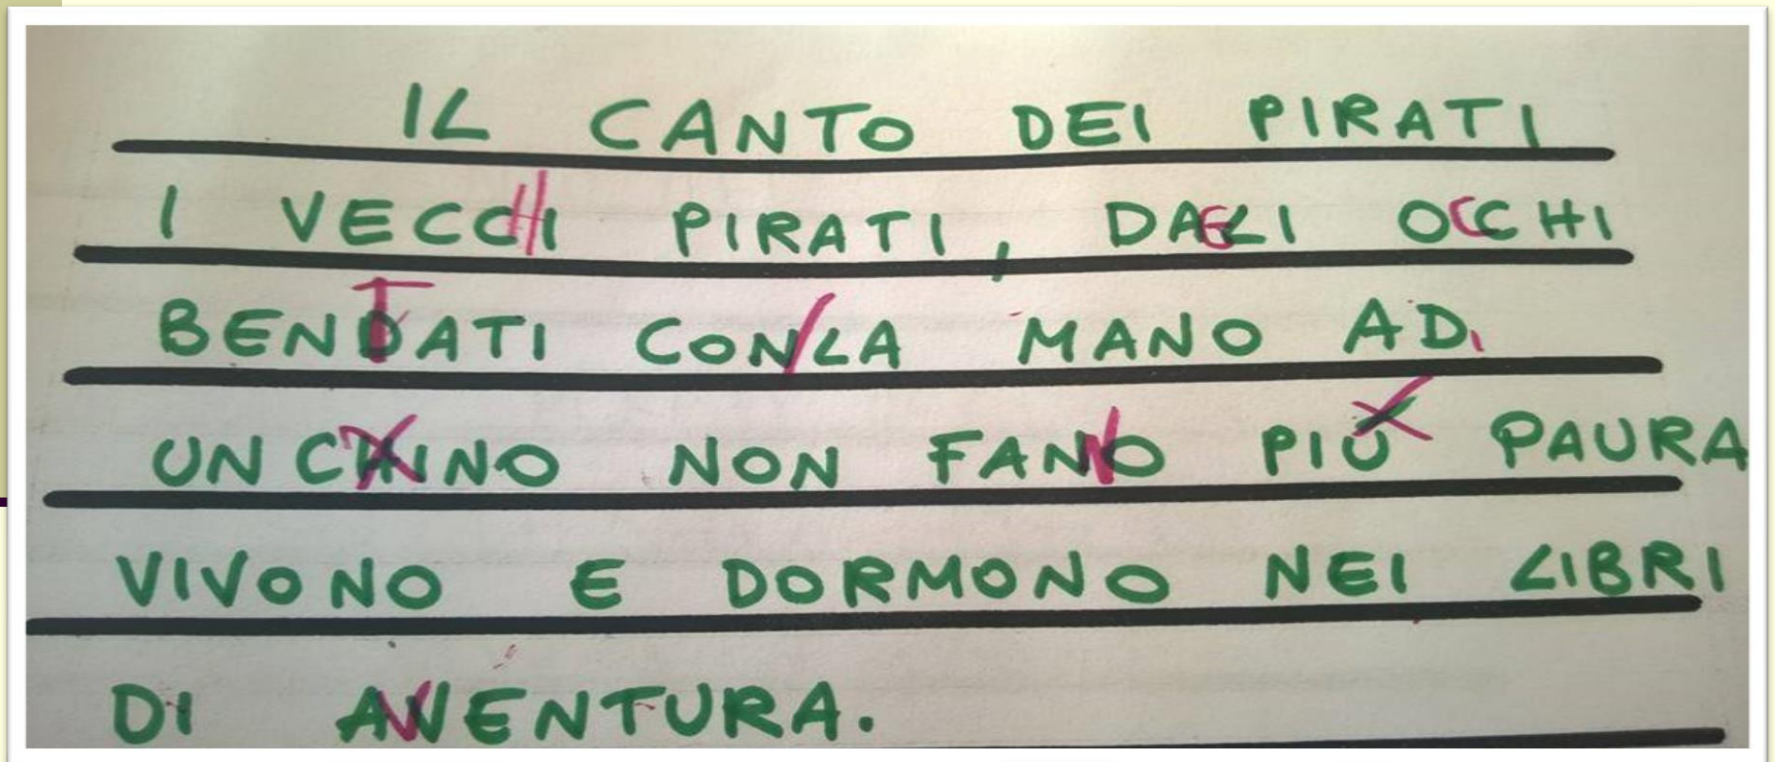 IL CANTO DEI PIRATI
I VECCHI PIRATI, DAGLI OCCHI
BENDATI CON/LA MANO AD
UNCINO NON FANNO PIÙ PAURA
VIVONO E DORMONO NEI LIBRI
DI AVVENTURA.